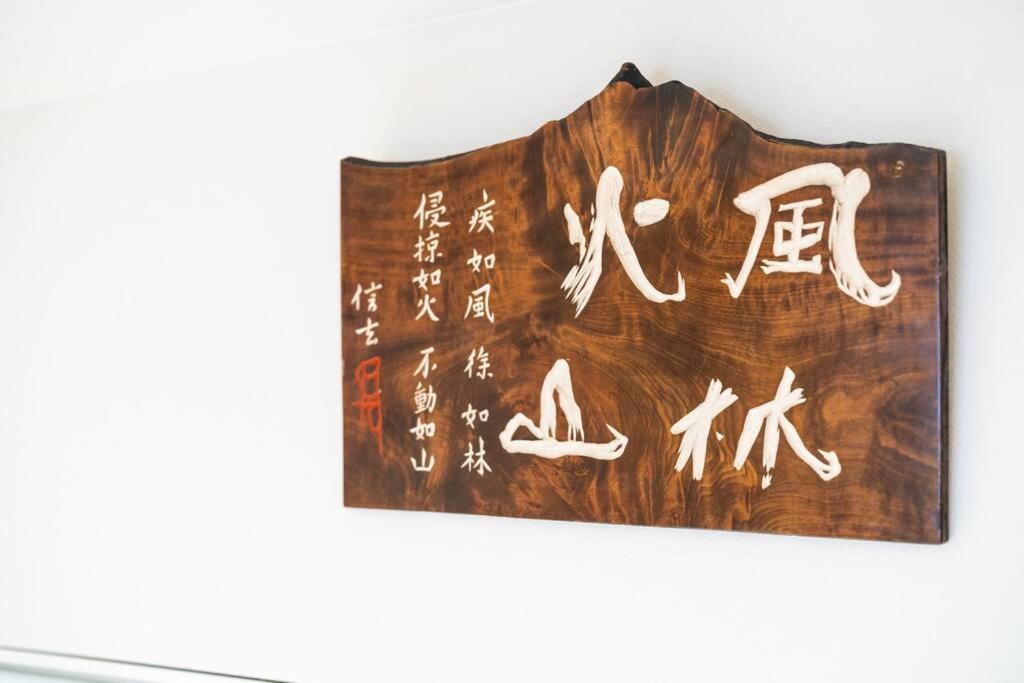 風林
火山
疾如風徐如林
侵掠如火不動如山
信玄